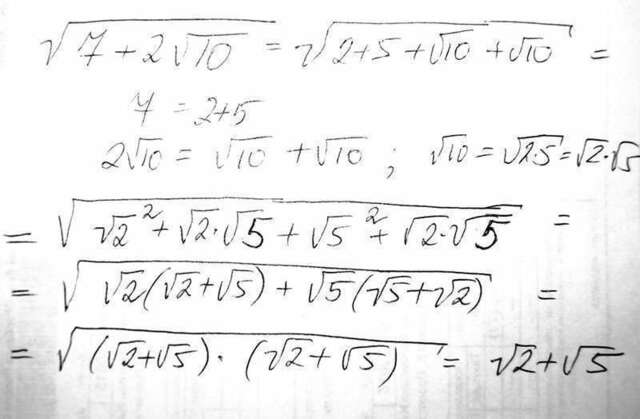 √(7 + 2√10) = √(2+5+√10+√10) =
7 = 2+5
2√10 = √10 + √10 ; √10 = √(2·5) = √2·√5
= √(√2² + √2·√5 + √5² + √2·√5) =
= √(√2(√2+√5) + √5(√5+√2)) =
= √((√2+√5)·(√2+√5)) = √2+√5